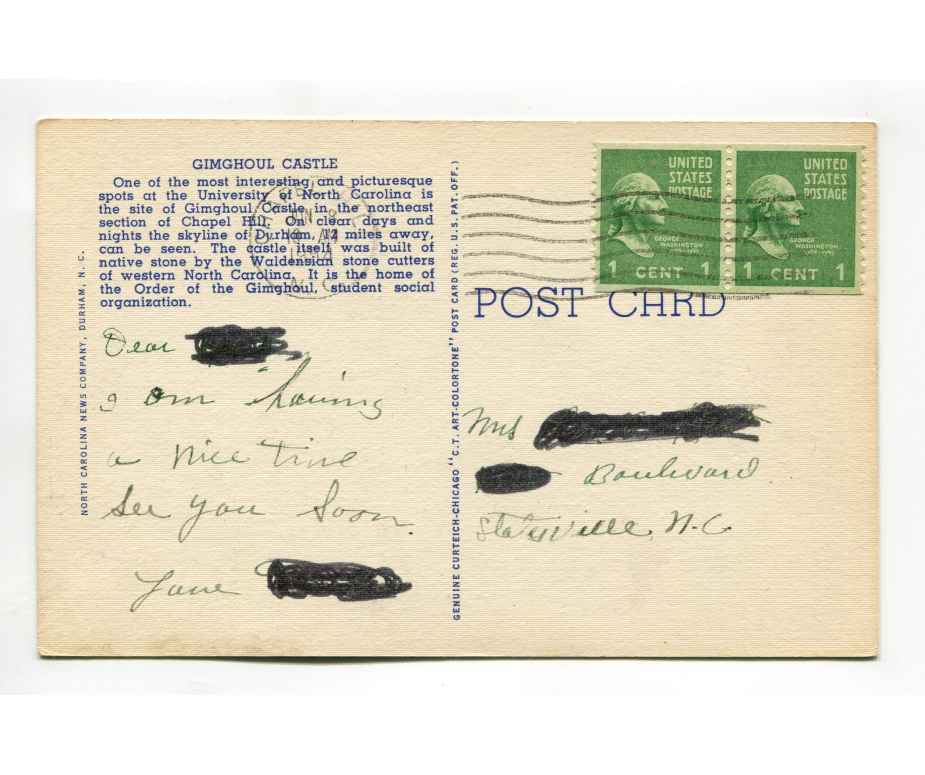 GIMGHOUL CASTLE
One of the most interesting and picturesque
spots at the University of North Carolina is
the site of Gimghoul Castle in the northeast
section of Chapel Hill. On clear days and
nights the skyline of Durham, 12 miles away,
can be seen. The castle itself was built of
native stone by the Waldensian stone cutters
of western North Carolina. It is the home of
the Order of the Gimghoul, student social
organization.
NORTH CAROLINA NEWS COMPANY, DURHAM, N. C.
Dear
I am having
a nice time
See you Soon.
GENUINE CURTEICH-CHICAGO "C.T. ART-COLORTONE" POST CARD (REG. U.S. PAT. OFF.)
UNITED
STATES
POSTAGE
GEORGE
WASHINGTON
1 CENT 1
UNITED
STATES
POSTAGE
GEORGE
WASHINGTON
1 CENT 1
POST CARD
Mrs
Boulevard
Statesville, N.C